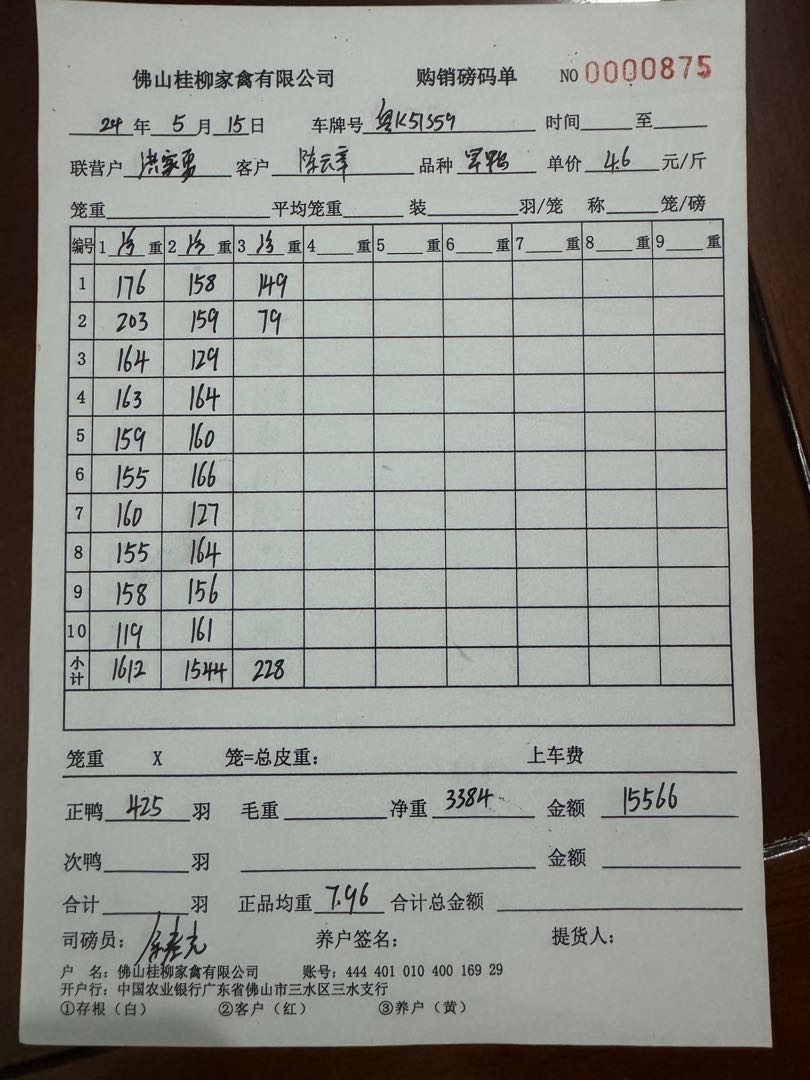 佛山桂柳家禽有限公司 购销磅码单 NO 0000875
24 年 5 月 15 日 车牌号 粤K51S59 时间 至
联营户 洪家勇 客户 陈云章 品种 单价 4.6 元/斤
笼重 平均笼重 装 羽/笼 称 笼/磅
编号 1 净 重 2 净 重 3 净 重 4 重 5 重 6 重 7 重 8 重 9 重
1 176 158 149
2 203 159 79
3 164 129
4 163 164
5 159 160
6 155 166
7 160 127
8 155 164
9 158 156
10 119 161
小计 1612 1544 228
笼重 X 笼=总皮重: 上车费
正鸭 425 羽 毛重 净重 3384 金额 15566
次鸭 羽 金额
合计 羽 正品均重 7.96 合计总金额
司磅员: 养户签名: 提货人:
户 名: 佛山桂柳家禽有限公司 账号: 444 401 010 400 169 29
开户行: 中国农业银行广东省佛山市三水区三水支行
①存根(白) ②客户(红) ③养户(黄)